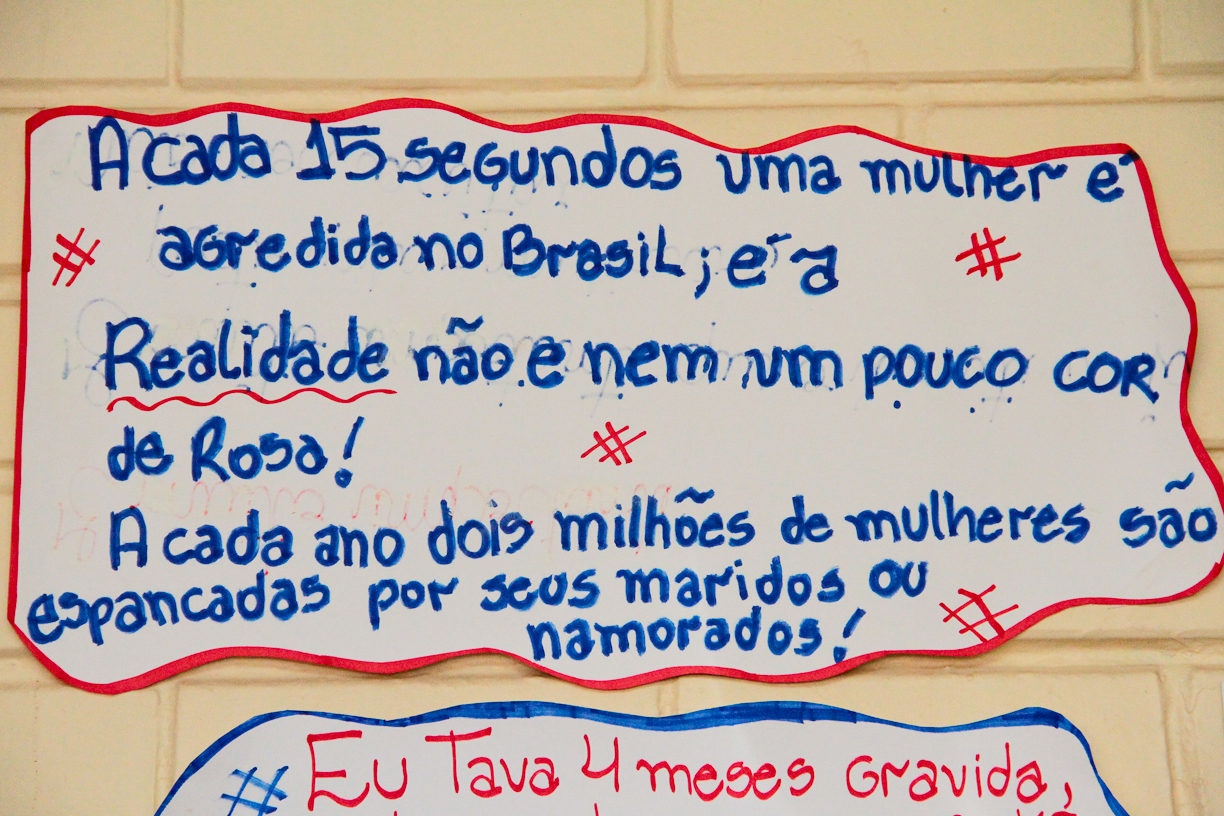 A cada 15 segundos uma mulher é
# agredida no Brasil; é a #
Realidade não e nem um pouco cor
de Rosa! #
A cada ano dois milhões de mulheres são
espancadas por seus maridos ou
namorados! #
# Eu Tava 4 meses Gravida,